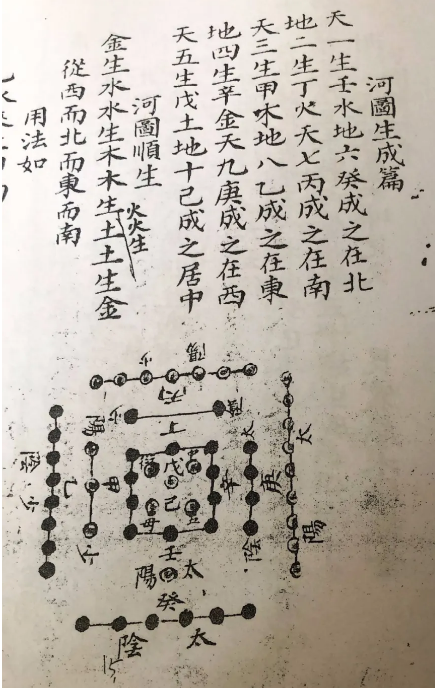 河圖生成篇
天一生壬水地六癸成之在北
地二生丁火天七丙成之在南
天三生甲木地八乙成之在東
地四生辛金天九庚成之在西
天五生戊土地十己成之居中
河圖順生
金生水水生木木生土土生金
火火生
從西而北而東而南
用法如
少陽
丙
少陰
丁
太陽
庚
太陰
辛
戊
己
甲
少陽
乙
少陰
壬
太陽
癸
太陰
15